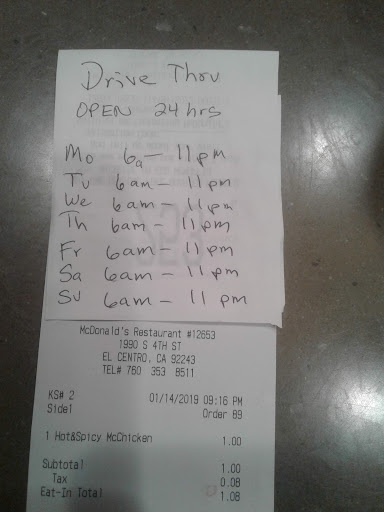 Drive Thru
OPEN 24 hrs
Mo 6a - 11pm
Tu 6am - 11pm
We 6am - 11pm
Th 6am - 11pm
Fr 6am - 11pm
Sa 6am - 11pm
Su 6am - 11pm
McDonald's Restaurant #12653
1990 S 4TH ST
EL CENTRO, CA 92243
TEL# 760 353 8511
KS# 2 01/14/2019 09:16 PM
Side1 Order 89
1 Hot&Spicy McChicken 1.00
Subtotal 1.00
Tax 0.08
Eat-In Total 1.08